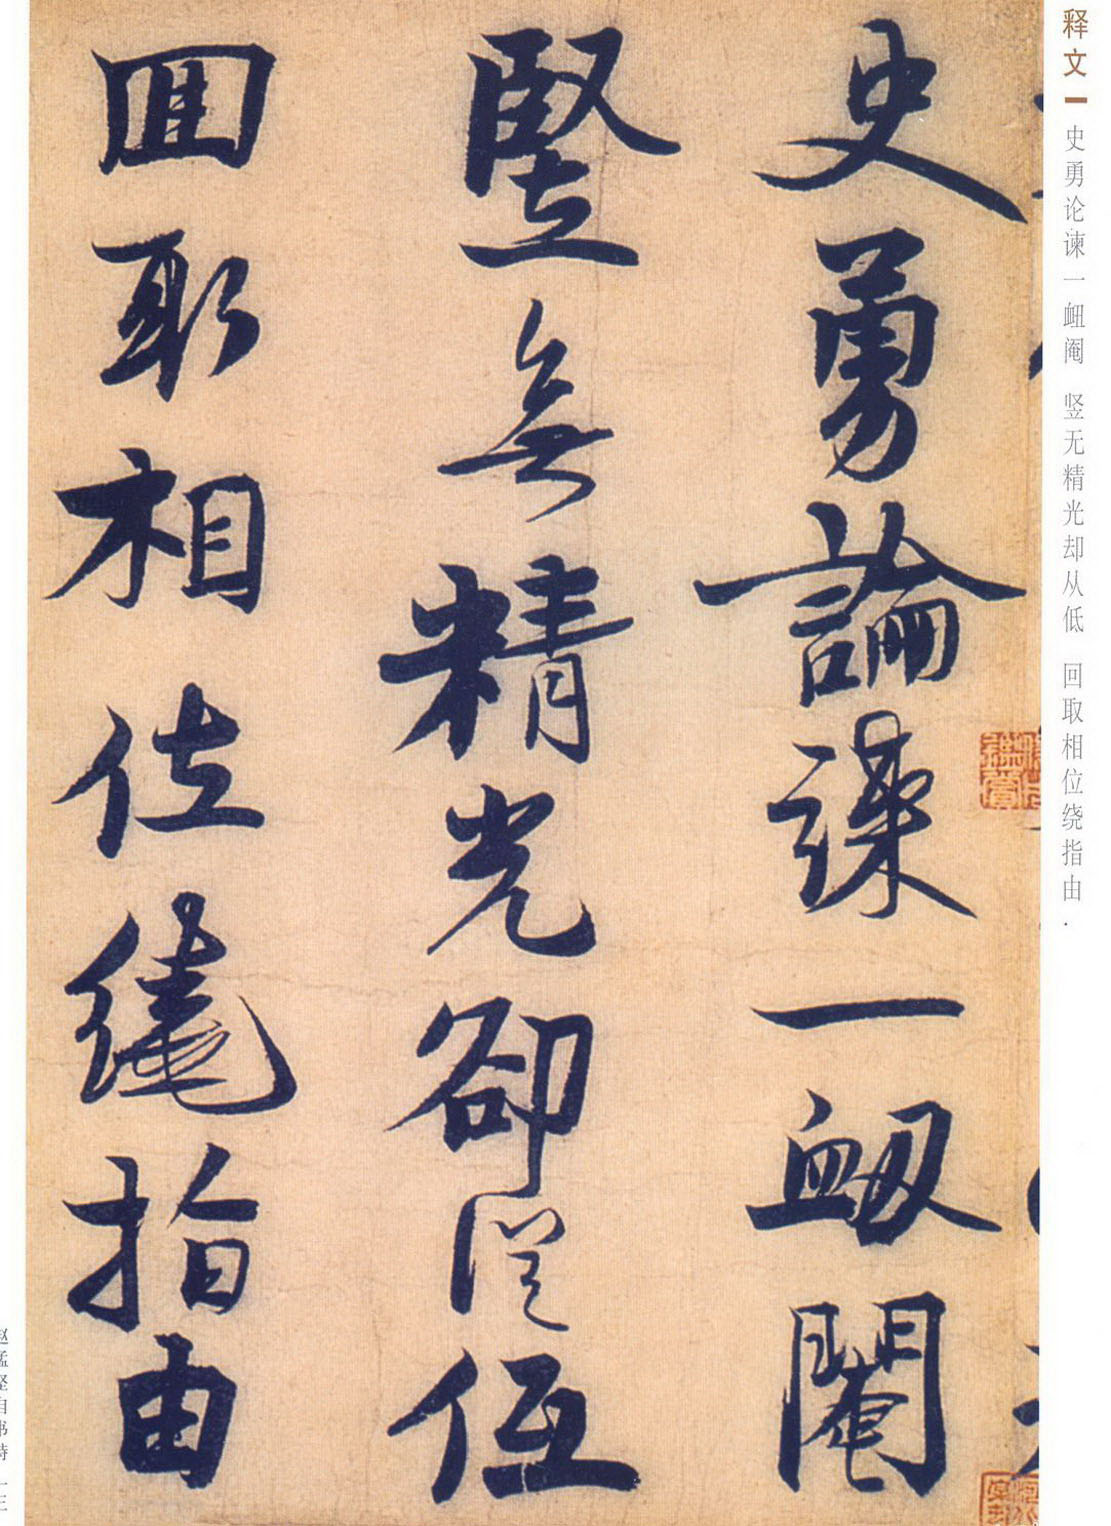 史勇論諫一衄閹
豎無精光卻從低
回取相位繞指由
释文 史勇论谏一衄阉 竖无精光却从低 回取相位绕指由.
赵孟坚自书诗 一三